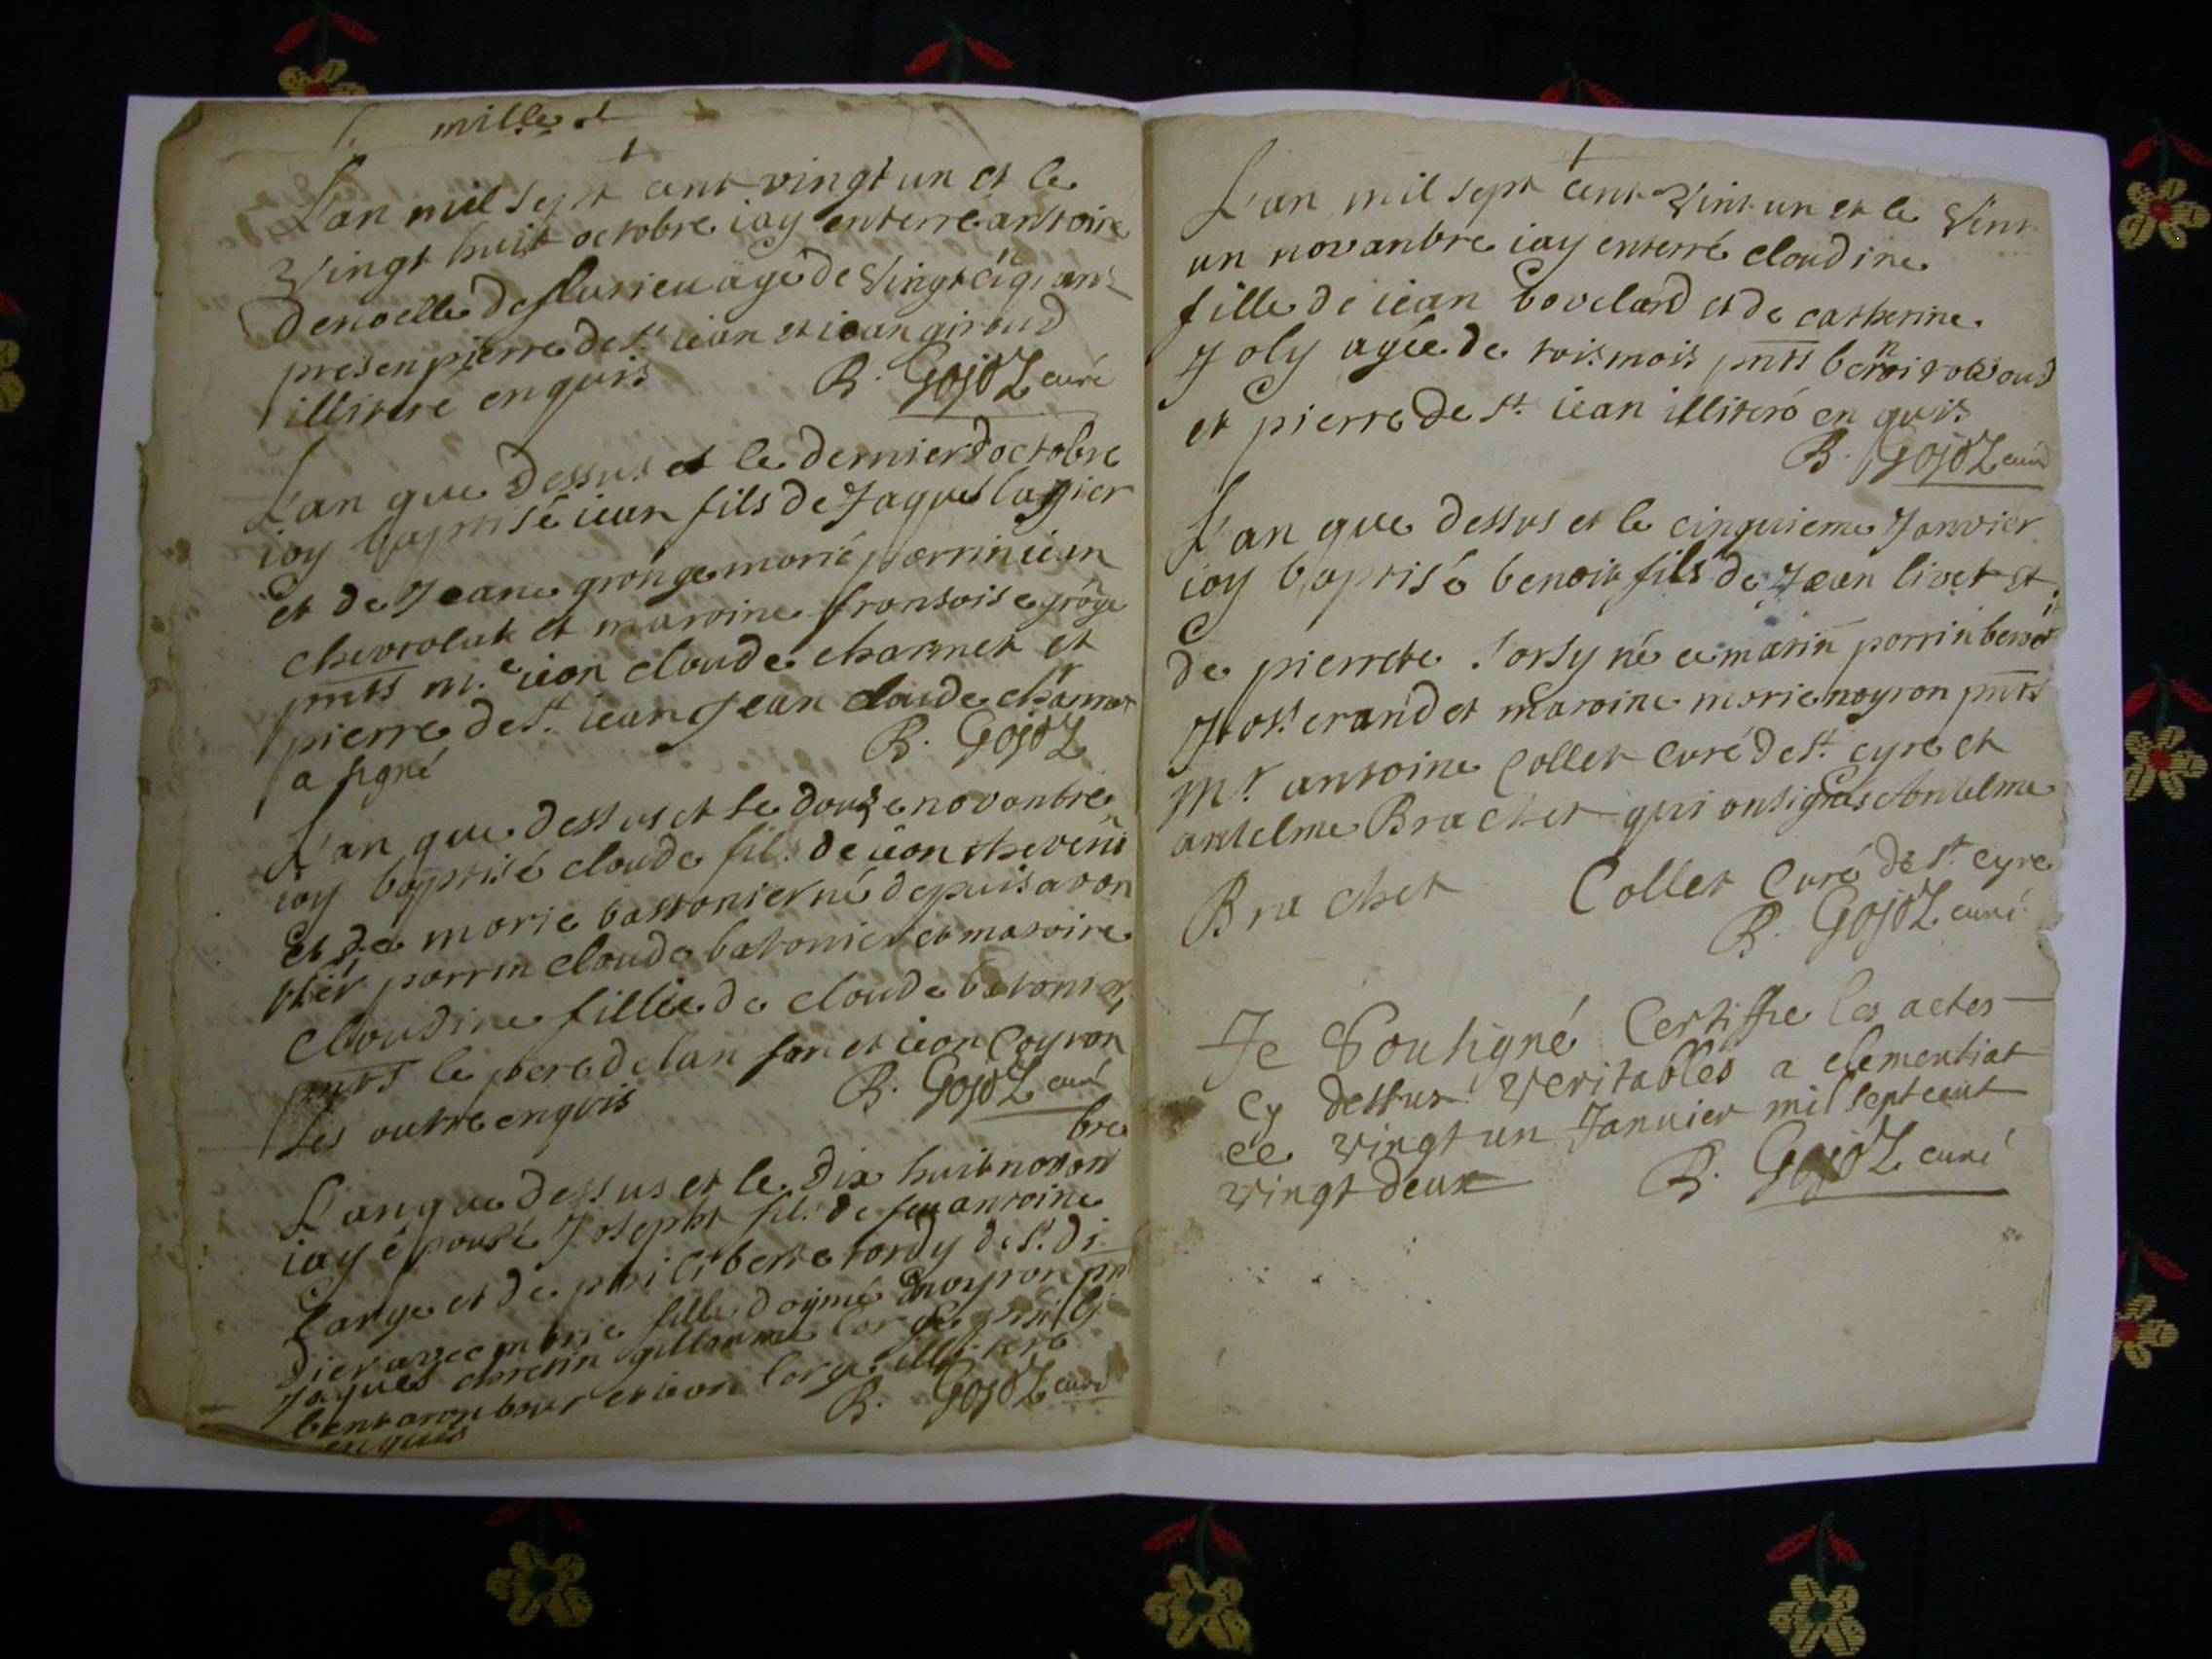 mille
L'an mil sept cent vingt un et le
Vingt huit octobre iay enterré antoine
denoelle de flurieu agé de Vingt ciq ans
presen pierre de st iean et iean giroud
illitere enquis B. GojoZ curé
L'an que dessus et le dernier doctobre
iay baptisé iean fils de Jaques lagier
et de Jeane grange marié parrin iean
chevrolat et maroine fransoise grãge
pnts m.e iean claude charmet et
pierre de st. iean Jean claude charmet
a signé B. GojoZ
L'an que dessus et le douze novanbre
iay baptisé claude fil. de iean theveni
et de marie bastonier né depuis avan
hier parrin claude batonier et maroire
claudine fillie de claude batonier
pnts le pere de lan fan et iean Coyron
les outre enquis B. GojoZ curé
bre
L'an que dessus et le dix huit novan
iay épousé Josepht fil. de feu antoine
Large et de philiberte tardy de st. di
dier avec marie fille daymé noyron pnt
Jaques chretin gillaume large phili
bert aronbour et iean large illitere
enquis B. GojoZ curé
L'an mil sept cent Vint un et le Vint
un novanbre iay enterré cloudine
fille de iean bovelard et de catherine
Joly agée de troismois pnts benoi
et pierre de st. iean illiteré enquis
B. GojoZ curé
L'an que dessus et le cinquieme Janvier
iay baptisé benoit fils de Jean livet et
de pierrete Sorsy né ce matin parrin benoit
Josserand et maroine marie noyron pnts
Mr. antoine Collet curé de st. cyre et
antelme Brachet qui ont signés Antelme
Brachet Collet Curé de st cyre
B. GojoZ curé
Je Soussigné Certiffie les actes
cy dessus veritables a clementiat
ce vingt un Januier mil sept cent
vingt deux B. GojoZ curé